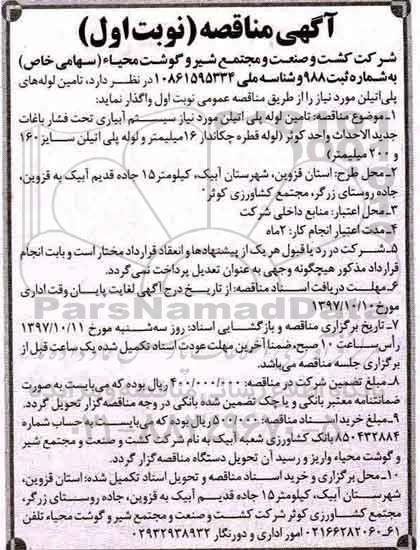 آگهی مناقصه (نوبت اول)
شرکت کشت و صنعت و مجتمع شیر و گوشت محیاء (سهامی خاص)
به شماره ثبت ۹۸۸ و شناسه ملی ۱۰۸۶۱۵۹۵۳۳۴ در نظر دارد، تامین لوله‌های
پلی‌اتیلن مورد نیاز را از طریق مناقصه عمومی نوبت اول واگذار نماید:
۱-موضوع مناقصه: تامین لوله پلی اتیلن مورد نیاز سیستم آبیاری تحت فشار باغات
جدید الاحداث واحد کوثر (لوله قطره چکاندار ۱۶میلیمتر و لوله پلی اتیلن سایز ۱۶۰
و ۲۰۰ میلیمتر)
۲-محل طرح: استان قزوین، شهرستان آبیک، کیلومتر ۱۵ جاده قدیم آبیک به قزوین،
جاده روستای زرگر، مجتمع کشاورزی کوثر
۳-محل اعتبار: منابع داخلی شرکت
۴-مدت اعتبار انجام کار: ۲ماه
۵-شرکت در رد یا قبول هر یک از پیشنهادها و انعقاد قرارداد مختار است و بابت انجام
قرارداد مذکور هیچگونه وجهی به عنوان تعدیل پرداخت نمی‌گردد.
۶-مهلت دریافت اسناد مناقصه: از تاریخ درج آگهی لغایت پایان وقت اداری
مورخ ۱۳۹۷/۱۰/۱۰
۷-تاریخ برگزاری مناقصه و بازگشایی اسناد: روز سه‌شنبه مورخ ۱۳۹۷/۱۰/۱۱
رأس ساعت ۱۰ صبح، ضمنا آخرین مهلت عودت اسناد تکمیل شده یک ساعت قبل از
برگزاری جلسه مناقصه می‌باشد.
۸-مبلغ تضمین شرکت در مناقصه: ۴۰۰/۰۰۰/۰۰۰ ریال بوده که می‌بایست به صورت
ضمانتنامه معتبر بانکی و یا چک تضمین شده بانکی در وجه مناقصه گزار تحویل گردد.
۹-مبلغ خرید اسناد مناقصه: ریال بوده که می‌بایست به حساب شماره
۸۵۰۴۳۲۸۸۴ بانک کشاورزی شعبه آبیک به نام شرکت کشت و صنعت و مجتمع شیر
و گوشت محیاء واریز و رسید آن تحویل دستگاه مناقصه گزار گردد.
۱۰-محل برگزاری و خرید اسناد مناقصه و تحویل اسناد تکمیل شده: استان قزوین،
شهرستان آبیک، کیلومتر ۱۵ جاده قدیم آبیک به قزوین، جاده روستای زرگر،
مجتمع کشاورزی کوثر شرکت کشت و صنعت و مجتمع شیر و گوشت محیاء تلفن
۶۱-۰۲۱۶۶۲۸۲۰۶۰ امور اداری و دورنگار ۰۲۹۳۲۹۳۸۹۳۲
ParsNamadData